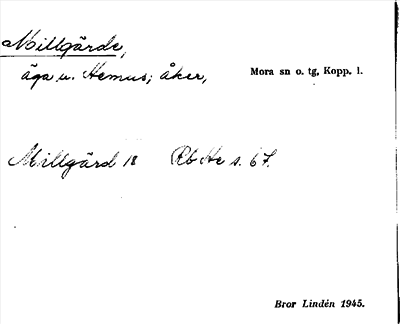 Millgärde,
äga u. Hemus; åker,
Mora sn o. tg, Kopp. l.
Millgärd 18 Rb He s. 67.
Bror Lindén 1945.